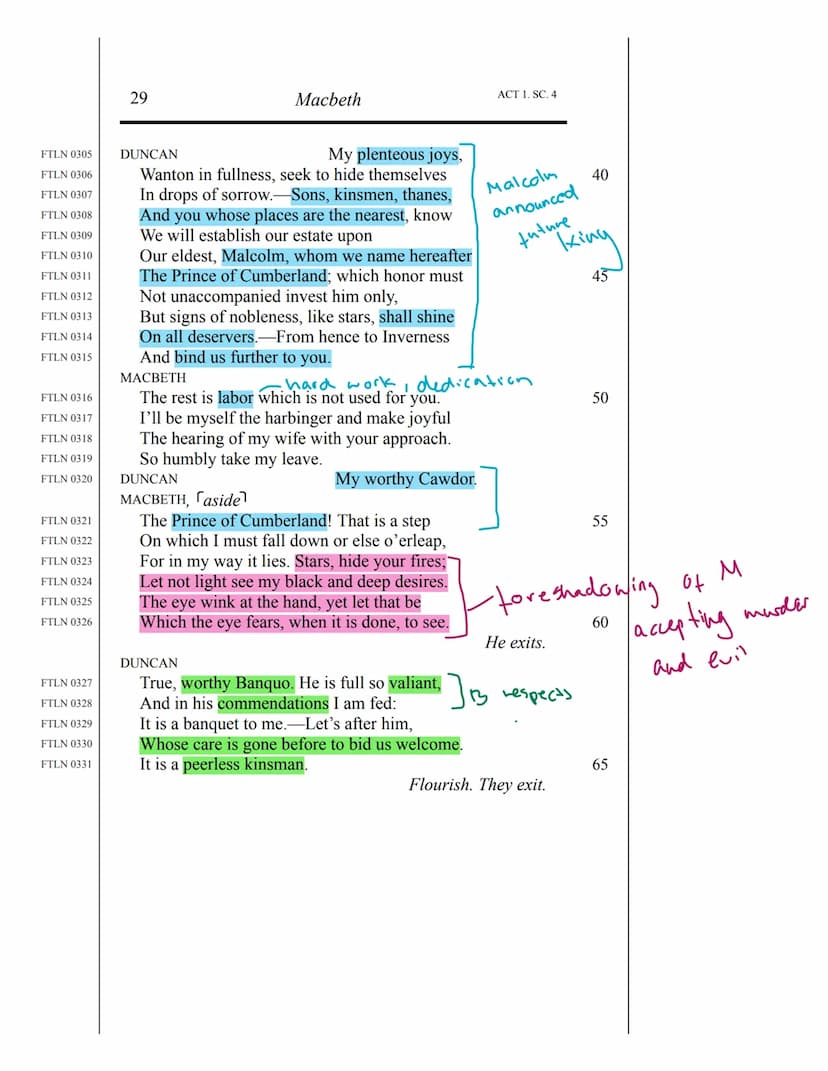 29 Macbeth ACT 1. SC. 4
FTLN 0305 DUNCAN My plenteous joys,
FTLN 0306 Wanton in fullness, seek to hide themselves 40
FTLN 0307 In drops of sorrow.—Sons, kinsmen, thanes,
FTLN 0308 And you whose places are the nearest, know
FTLN 0309 We will establish our estate upon
FTLN 0310 Our eldest, Malcolm, whom we name hereafter
FTLN 0311 The Prince of Cumberland; which honor must 45
FTLN 0312 Not unaccompanied invest him only,
FTLN 0313 But signs of nobleness, like stars, shall shine
FTLN 0314 On all deservers.—From hence to Inverness
FTLN 0315 And bind us further to you.
Malcolm
announced
future
king
MACBETH
hard work, dedication
FTLN 0316 The rest is labor which is not used for you. 50
FTLN 0317 I’ll be myself the harbinger and make joyful
FTLN 0318 The hearing of my wife with your approach.
FTLN 0319 So humbly take my leave.
FTLN 0320 DUNCAN My worthy Cawdor.
MACBETH, ⌜aside⌝
FTLN 0321 The Prince of Cumberland! That is a step 55
FTLN 0322 On which I must fall down or else o’erleap,
FTLN 0323 For in my way it lies. Stars, hide your fires;
FTLN 0324 Let not light see my black and deep desires.
FTLN 0325 The eye wink at the hand, yet let that be
FTLN 0326 Which the eye fears, when it is done, to see. 60
foreshadowing of M
accepting murder
and evil
He exits.
DUNCAN
FTLN 0327 True, worthy Banquo. He is full so valiant,
FTLN 0328 And in his commendations I am fed:
B respects
FTLN 0329 It is a banquet to me.—Let’s after him,
FTLN 0330 Whose care is gone before to bid us welcome.
FTLN 0331 It is a peerless kinsman. 65
Flourish. They exit.